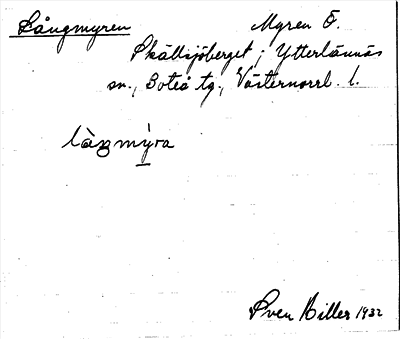 Långmyren Myren Ö.
Skallsjöberget; Ytterlännäs
sn., Boteå tg., Västernorrl. l.
làŋmỳra
Sven Hiller 1932